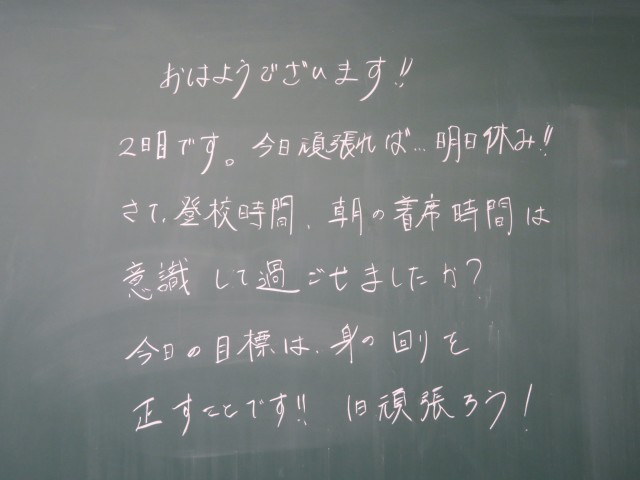 おはようございます!!
2日目です。今日頑張れば…明日休み!!
さて、登校時間、朝の着席時間は
意識して過ごせましたか?
今日の目標は、身の回りを
正すことです!! 1日頑張ろう!